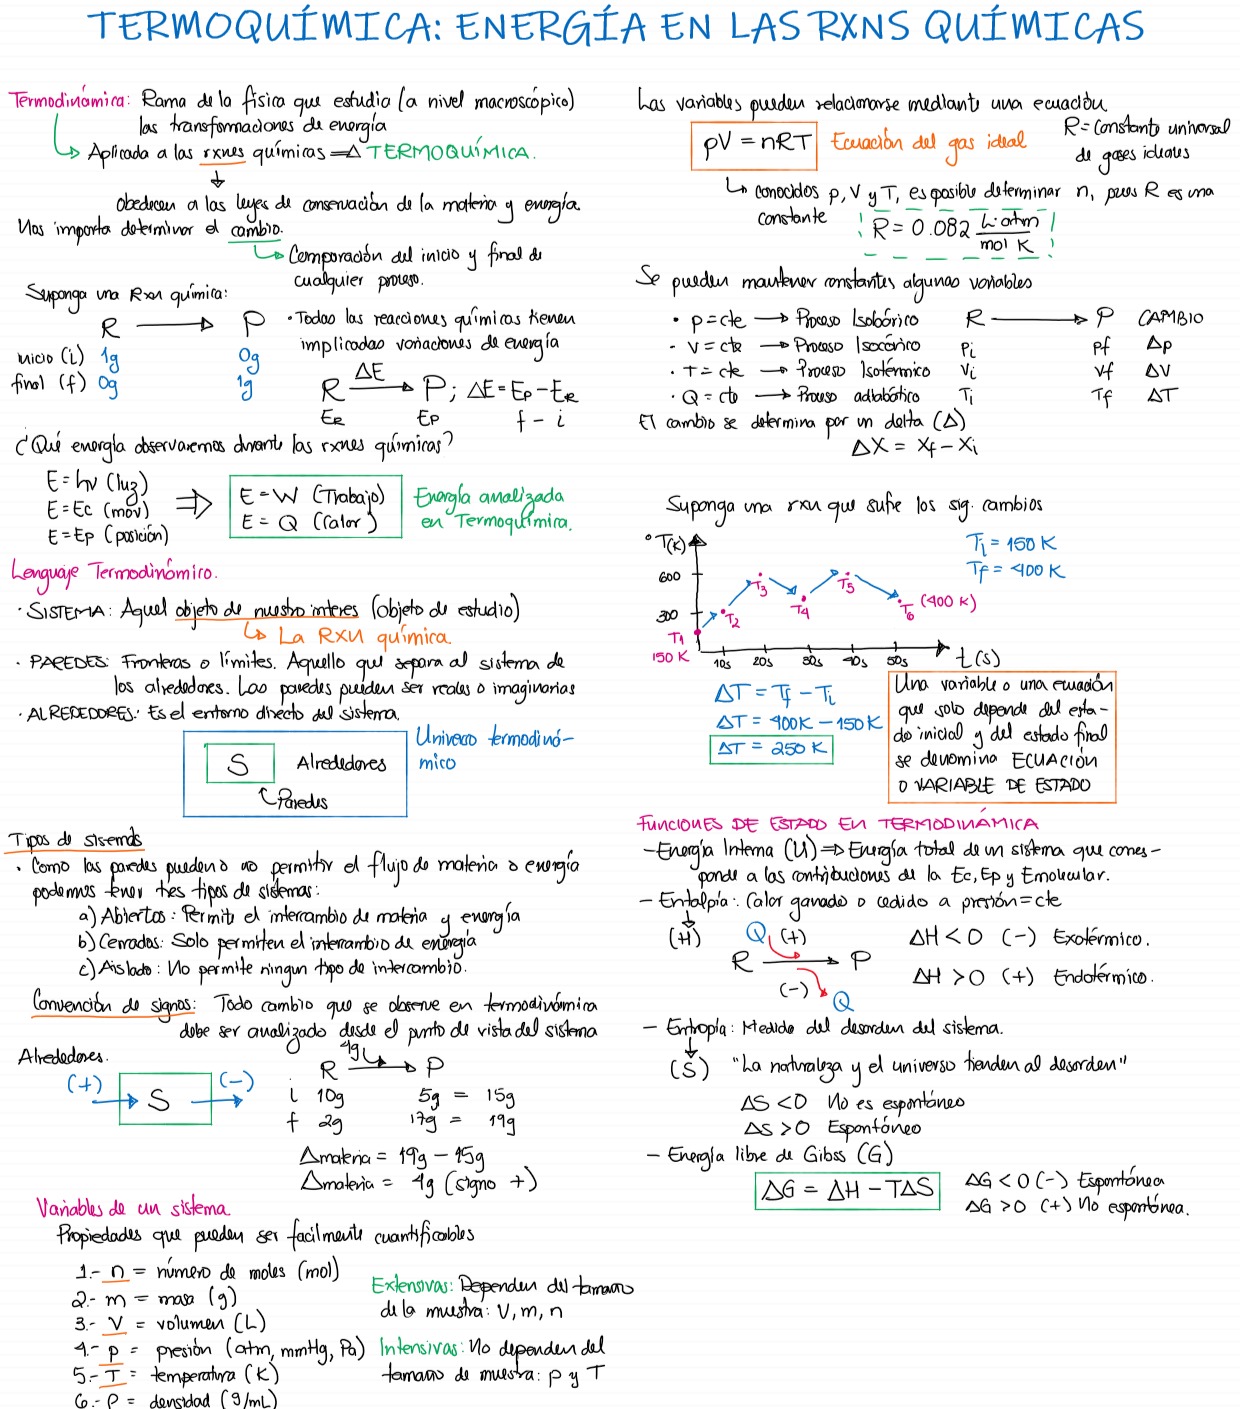 TERMOQUÍMICA: ENERGÍA EN LAS RXNS QUÍMICAS
Termodinámica: Rama de la física que estudia (a nivel macroscópico)
las transformaciones de energía
↳ Aplicada a las rxnes químicas ⇒ TERMOQUÍMICA.
↓
obedecen a las leyes de conservación de la materia y energía.
Nos importa determinar el cambio.
↳ Comparación del inicio y final de
cualquier proceso.
Suponga una Rxn química:
R → P
inicio (i) 1g 0g
final (f) 0g 1g
· Todas las reacciones químicas tienen
implicadas variaciones de energía
ΔE
R → P; ΔE = Ep - ER
ER Ep f - i
¿Qué energía observaremos durante las rxnes químicas?
E = hν (luz)
E = Ec (mov)
E = Ep (posición)
⇒
E = W (Trabajo)
E = Q (Calor)
Energía analizada
en Termoquímica.
Lenguaje Termodinámico.
· SISTEMA: Aquel objeto de nuestro interes (objeto de estudio)
↳ La RXN química.
· PAREDES: Fronteras o límites. Aquello que separa al sistema de
los alrededores. Las paredes pueden ser reales o imaginarias
· ALREDEDORES: Es el entorno directo del sistema.
S Alrededores
Paredes
Universo termodiná-
mico
Tipos de sistemas
· Como las paredes pueden o no permitir el flujo de materia o energía
podemos tener tres tipos de sistemas:
a) Abiertos: Permite el intercambio de materia y energía
b) Cerrados: Solo permiten el intercambio de energía
c) Aislado: No permite ningun tipo de intercambio.
Convención de signos: Todo cambio que se observe en termodinámica
debe ser analizado desde el punto de vista del sistema
Alrededores.
(+) S (-)
4g
R → P
i 10g 5g = 15g
f 2g 17g = 19g
Δmateria = 19g - 15g
Δmateria = 4g (signo +)
Variables de un sistema
Propiedades que pueden ser facilmente cuantificables
1.- n = número de moles (mol)
2.- m = masa (g)
3.- V = volumen (L)
4.- p = presión (atm, mmHg, Pa)
5.- T = temperatura (K)
6.- ρ = densidad (g/mL)
Extensivas: Dependen del tamano
de la muestra: V, m, n
Intensivas: No dependen del
tamano de muestra: p y T
Las variables pueden relacionarse mediante una ecuación
pV = nRT Ecuación del gas ideal
R = Constante universal
de gases ideales
↳ conocidos p, V y T, es posible determinar n, pues R es una
constante
R = 0.082 L·atm
mol K
Se pueden mantener constantes algunas variables
· p = cte → Proceso Isobárico
· V = cte → Proceso Isocórico
· T = cte → Proceso Isotérmico
· Q = cte → Proceso adiabático
R → P CAMBIO
Pi Pf Δp
Vi Vf ΔV
Ti Tf ΔT
El cambio se determina por un delta (Δ)
ΔX = Xf - Xi
Suponga una rxn que sufre los sig. cambios
° T(K)
600
300
T1
150 K
T2
T3
T4
T5
T6 (400 K)
10s 20s 30s 40s 50s t(s)
Ti = 150 K
Tf = 400 K
ΔT = Tf - Ti
ΔT = 400K - 150K
ΔT = 250 K
Una variable o una ecuación
que solo depende del esta-
do inicial y del estado final
se denomina ECUACIÓN
O VARIABLE DE ESTADO
FUNCIONES DE ESTADO EN TERMODINÁMICA
- Energía Interna (U) ⇒ Energía total de un sistema que corres-
ponde a las contribuciones de la Ec, Ep y Emolecular.
- Entalpía: Calor ganado o cedido a presión = cte
↓
(H)
Q (+)
R → P
(-) Q
ΔH < 0 (-) Exotérmico.
ΔH > 0 (+) Endotérmico.
- Entropía: Medida del desorden del sistema.
↓
(S) "La naturaleza y el universo tienden al desorden"
ΔS < 0 No es espontáneo
ΔS > 0 Espontáneo
- Energía libre de Gibss (G)
ΔG = ΔH - TΔS
ΔG < 0 (-) Espontánea
ΔG > 0 (+) No espontánea.